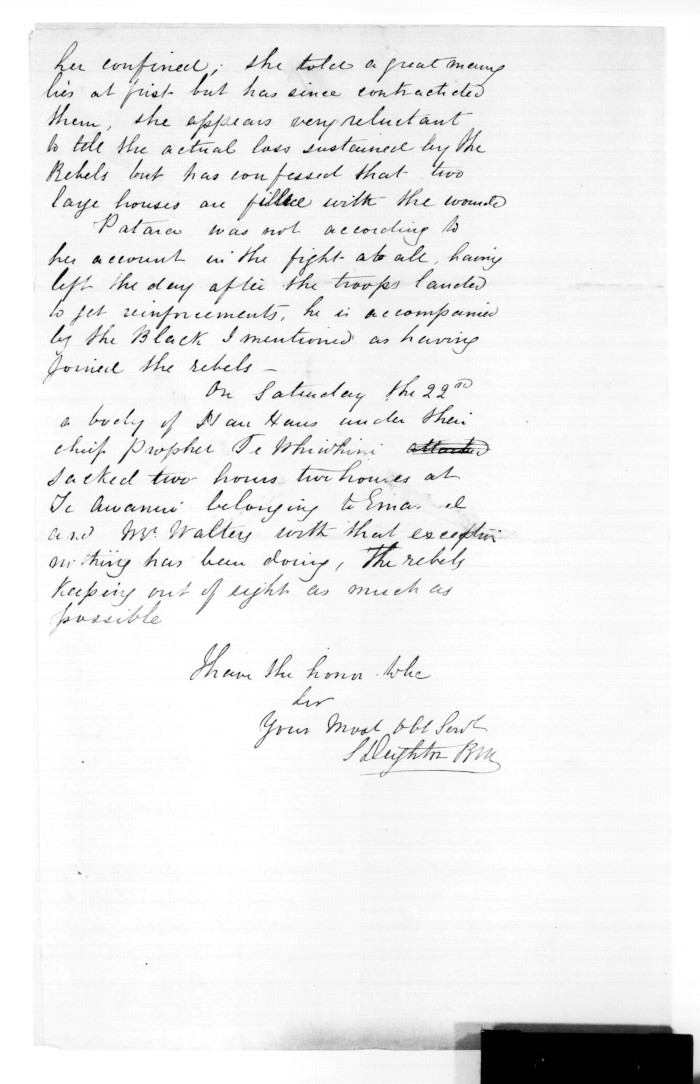 her confined; she told a great many
lies at first but has since contracticted
them, she appears very reluctant
to tell the actual loss sustained by the
Rebels but has confessed that two
large houses are filled with the wounded
Patara was not according to
her account in the fight at all, having
left the day after the troops landed
to get reinforcements, he is accompanied
by the Black I mentioned as having
joined the rebels –
On Saturday the 22nd
a body of Hau Haus under their
chief Prophet Te Whiwhini attacked
sacked two hours two houses at
Te Awanui belonging to
and Mr Walters with that exception
nothing has been doing, the rebels
keeping out of sight as much as
possible
I have the honor to be
Sir
Your Most Obt Servt
S Deighton RM